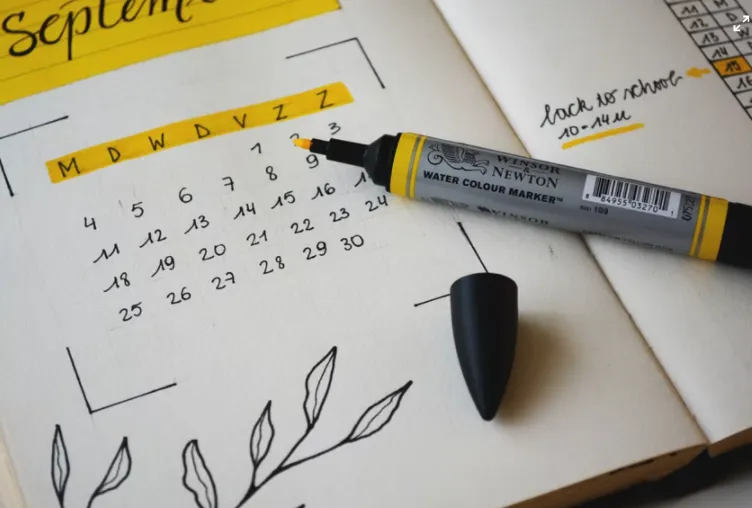 Septem
M D W D V Z Z
1 2 3
4 5 6 7 8 9
11 12 13 14 15 16 1
18 19 20 21 22 23 24
25 26 27 28 29 30
WINSOR
& NEWTON
WATER COLOUR MARKER™
109
8 84955 03270 1
WINSOR
11 M
12 D
13 W
14
15
16
back to school
10-14u